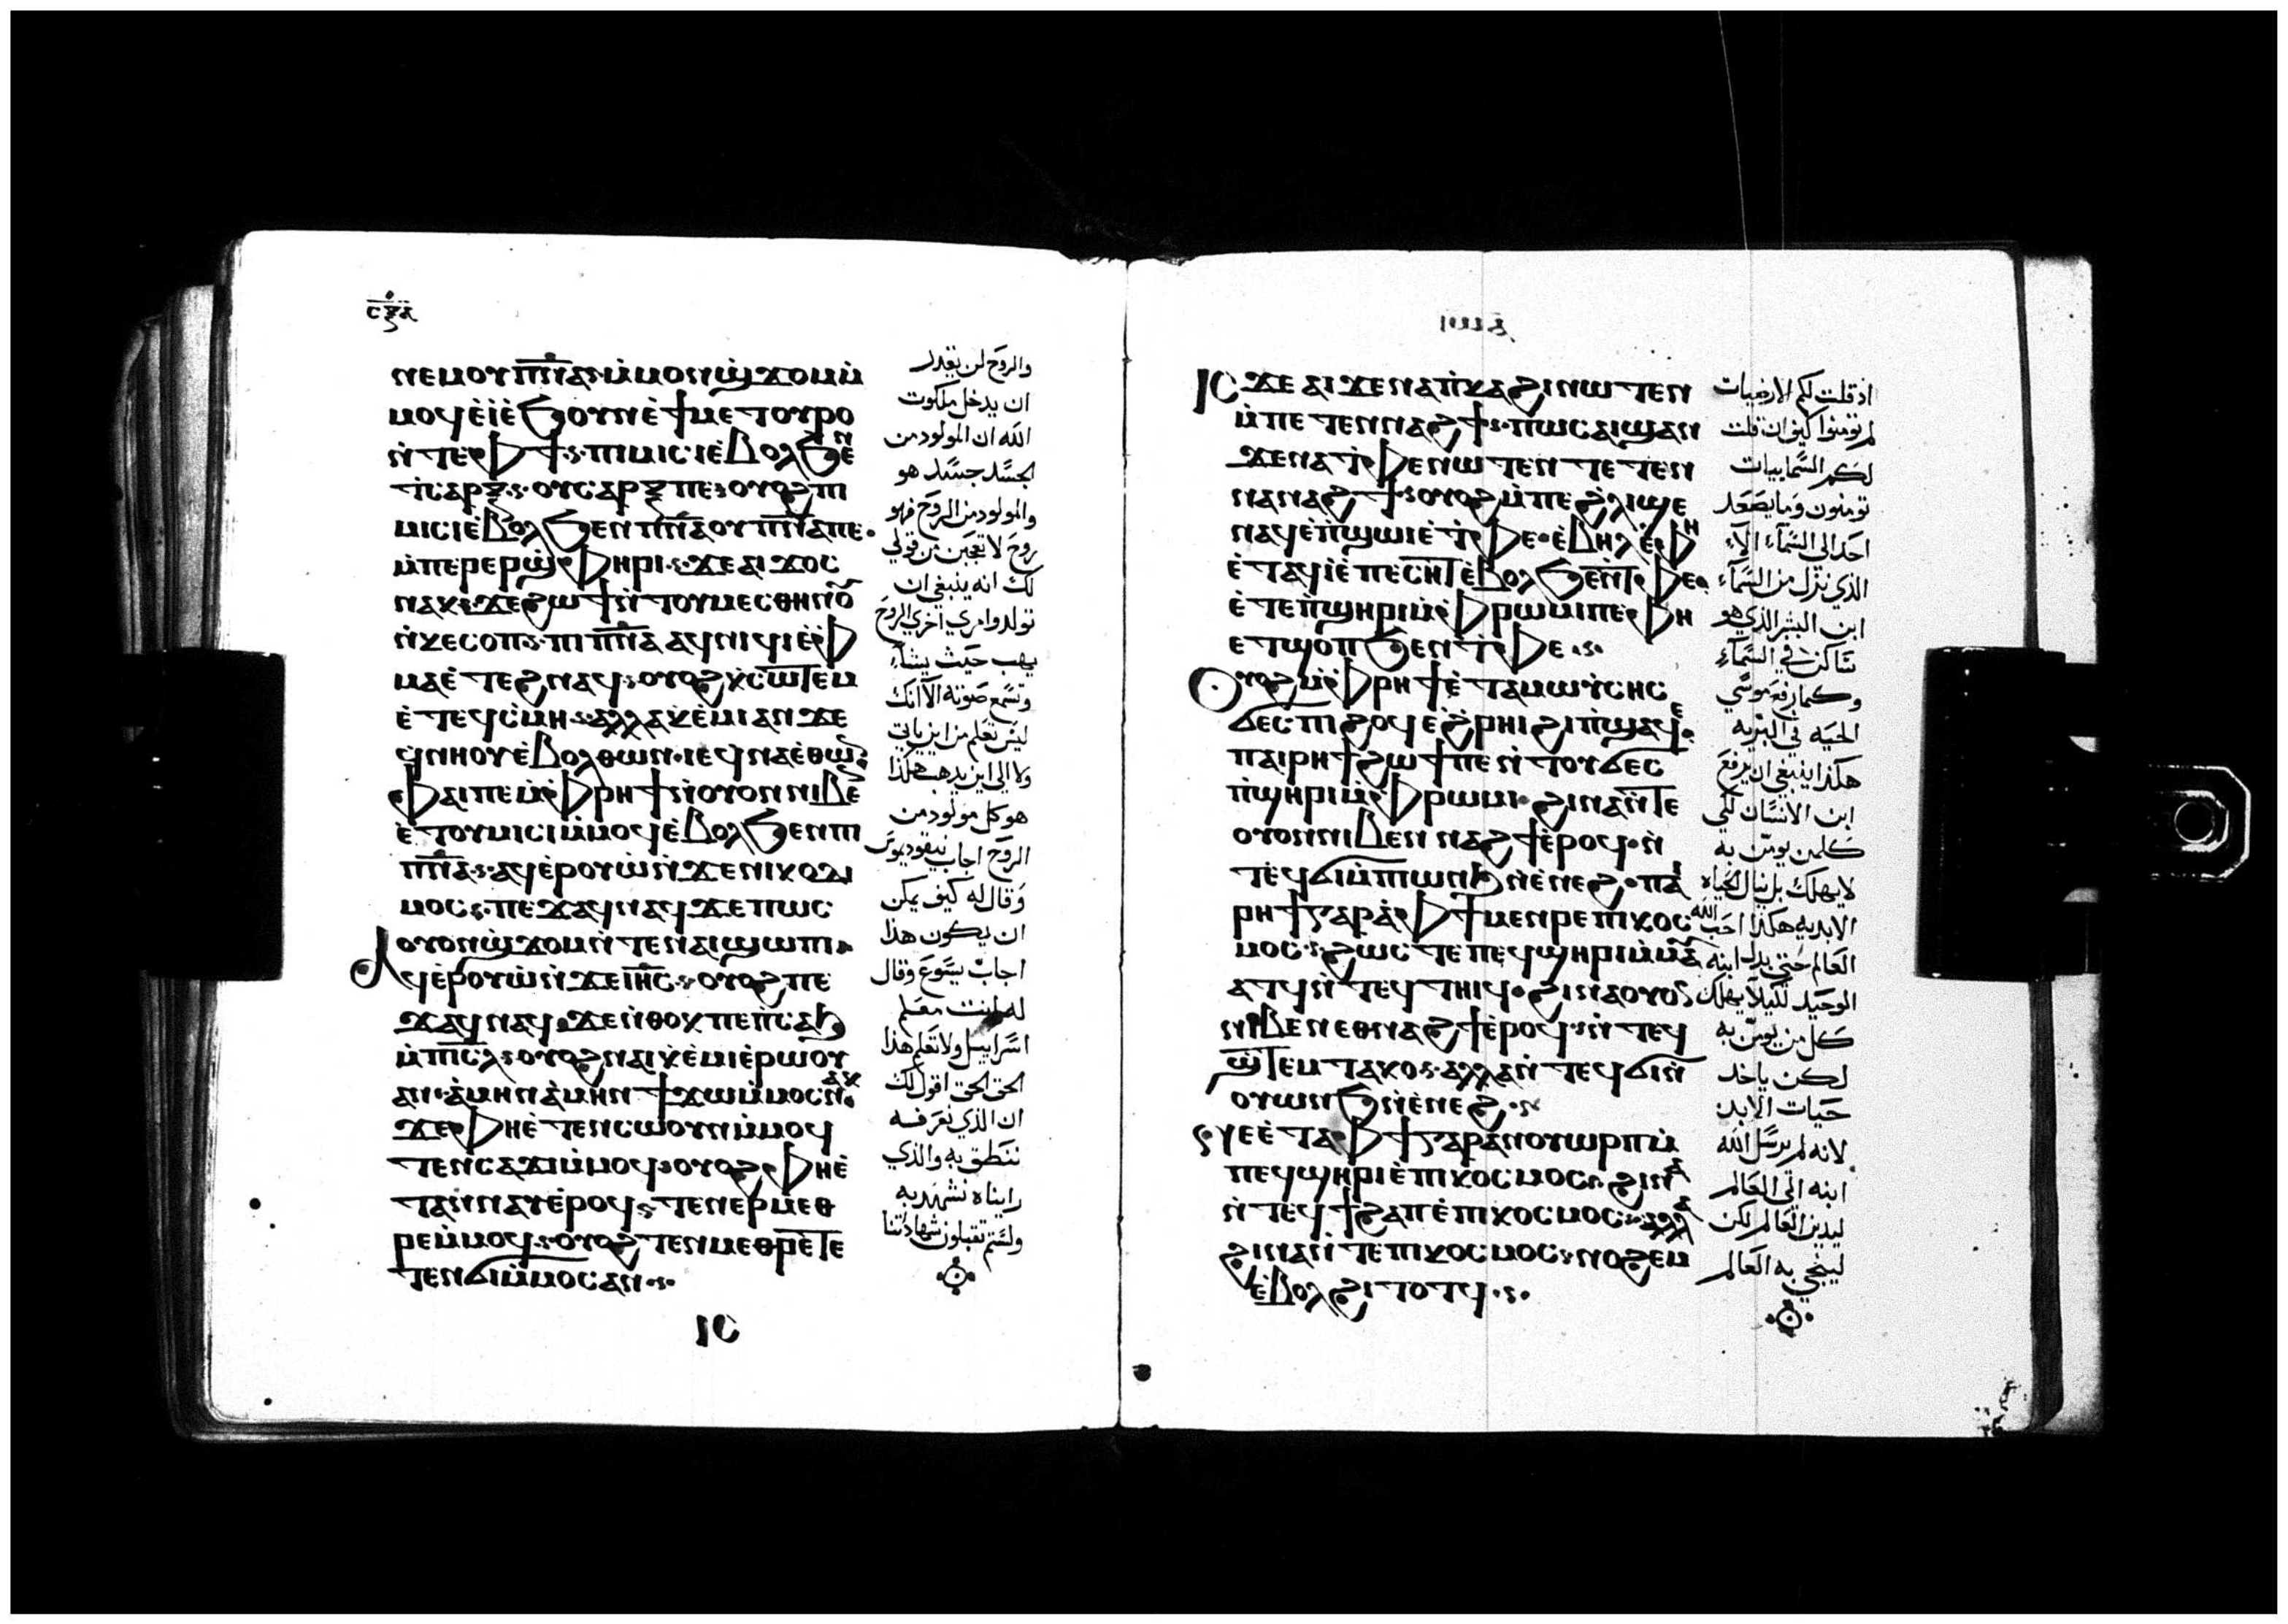 ⲥⲝⲇ
ⲛⲉⲙⲟⲩⲡ̅ⲛ̅ⲁ̅ ⲙ̀ⲙⲟⲛϣϫⲟⲙⲙ̀
ⲙⲟϥⲉ̀ⲓ̀ⲉ̀ϧⲟⲩⲛⲉ̀ϯⲙⲉⲧⲟⲩⲣⲟ
ⲛ̀ⲧⲉⲫϯ ⲡⲓⲙⲓⲥⲓⲉ̀ⲃⲟⲗϧⲉⲛ
ϯⲥⲁⲣⲝ ⲟⲩⲥⲁⲣⲝⲡⲉ ⲟⲩⲟϩⲡⲓ
ⲙⲓⲥⲓⲉ̀ⲃⲟⲗϧⲉⲛⲡⲓⲡ̅ⲛ̅ⲁ̅ⲟⲩⲡ̅ⲛ̅ⲁ̅ⲡⲉ
ⲙ̀ⲡⲉⲣⲉⲣϣ̀ⲫⲏⲣⲓ ϫⲉⲁⲓϫⲟⲥ
ⲛⲁⲕ ϫⲉϩⲱϯⲛ̀ⲧⲟⲩⲙⲉⲥⲑⲏⲛⲟⲩ
ⲛ̀ⲕⲉⲥⲟⲡ ⲡⲓⲡ̅ⲛ̅ⲁ̅ ⲁϥⲛⲓϥⲓⲉ̀ⲫ
ⲙⲁⲉ̀ⲧⲉϩⲛⲁϥ ⲟⲩⲟϩⲕ̀ⲥⲱⲧⲉⲙ
ⲉ̀ⲧⲉϥⲥ̀ⲙⲏ ⲁⲗⲗⲁⲕ̀ⲉ̀ⲙⲓⲁⲛϫⲉ
ϥ̀ⲛⲏⲟⲩⲉ̀ⲃⲟⲗⲑⲱⲛ ⲓⲉϥⲛⲁⲉ̀ⲑⲱⲛ
ⲫⲁⲓⲡⲉⲙ̀ⲫⲣⲏϯⲛ̀ⲟⲩⲟⲛⲛⲓⲃⲉⲛ
ⲉ̀ⲧⲟⲩⲙⲓⲥⲓⲙ̀ⲙⲟϥⲉ̀ⲃⲟⲗϧⲉⲛⲡⲓ
ⲡ̅ⲛ̅ⲁ̅ ⲁϥⲉ̀ⲣⲟⲩⲱ̀ⲛ̀ϫⲉⲛⲓⲕⲟⲇⲓ
ⲙⲟⲥ ⲡⲉϫⲁϥⲛⲁϥϫⲉⲡⲱⲥ
ⲟⲩⲟⲛϣ̀ϫⲟⲙⲛ̀ⲧⲉⲛⲁⲓϣⲱⲡⲓ
ⲁϥⲉ̀ⲣⲟⲩⲱ̀ⲛ̀ϫⲉⲓ̅ⲏ̅ⲥ̅ ⲟⲩⲟϩⲡⲉ
ϫⲁϥⲛⲁϥ ϫⲉⲛ̀ⲑⲟⲕⲡⲉⲡ̀ⲥⲁϧ
ⲙ̀ⲡⲓⲥ̅ⲗ̅ ⲟⲩⲟϩⲛⲁⲓⲕ̀ⲉ̀ⲙⲓⲉ̀ⲣⲱⲟⲩ
ⲁⲛ ⲁ̀ⲙⲏⲛⲁ̀ⲙⲏⲛϯϫⲱⲙ̀ⲙⲟⲥⲛⲁⲕ
ϫⲉⲫⲏⲉ̀ⲧⲉⲛⲥⲱⲟⲩⲛⲙ̀ⲙⲟϥ
ⲧⲉⲛⲥⲁϫⲓⲙ̀ⲙⲟϥ ⲟⲩⲟϩⲫⲏⲉ̀
ⲧⲁⲛⲛⲁⲩⲉ̀ⲣⲟϥ ⲧⲉⲛⲉⲣⲙⲉⲑ
ⲣⲉⲙ̀ⲙⲟϥ ⲟⲩⲟϩⲧⲉⲛⲙⲉⲑⲣⲉⲧⲉ
ⲧⲉⲛϭⲓⲙ̀ⲙⲟⲥⲁⲛ
والروح لن يقدر
ان يدخل ملكوت
الله ان المولود من
الجسد جسد هو
والمولود من الروح فهو
روح لا تعجبن من قولي
لك انه ينبغي ان
تولدوا مرة اخري الروح
يهب حيث يشاء
وتسمع صوته الا انك
ليس تعلم من اين ياتي
ولا الي اين يذهب هكذا
هو كل مولود من
الروح اجاب نيقوديموس
وقال له كيف يمكن
ان يكون هذا
اجاب يسوع وقال
له انت معلم
اسراييل ولا تعلم هذا
الحق الحق اقول لك
ان الذي نعرفه
ننطق به والذي
رايناه نشهد به
ولستم تقبلون شهادتنا
ⲓⲥ
ⲓⲥϫⲉⲁⲓϫⲉⲛⲁⲡ̀ⲕⲁϩⲓⲛⲱⲧⲉⲛ
ⲙ̀ⲡⲉⲧⲉⲛⲛⲁϩϯ ⲡⲱⲥⲁⲓϣⲁⲛ
ϫⲉⲛⲁⲧ̀ⲫⲉⲛⲱⲧⲉⲛⲧⲉⲧⲉⲛ
ⲛⲁⲛⲁϩϯ ⲟⲩⲟϩⲙ̀ⲡⲉϩ̀ⲗⲓϣⲉ
ⲛⲁϥⲉ̀ⲡ̀ϣⲱⲓⲉ̀ⲧ̀ⲫⲉ ⲉ̀ⲃⲏⲗⲉ̀ⲫⲏ
ⲉ̀ⲧⲁϥⲓ̀ⲉ̀ⲡⲉⲥⲏⲧⲉ̀ⲃⲟⲗϧⲉⲛⲧ̀ⲫⲉ
ⲉ̀ⲧⲉⲡ̀ϣⲏⲣⲓⲙ̀ⲫⲣⲱⲙⲓⲡⲉ ⲫⲏ
ⲉⲧϣⲟⲡϧⲉⲛⲧ̀ⲫⲉ
Ⲟⲩⲟϩⲙ̀ⲫⲣⲏϯⲉ̀ⲧⲁⲙⲱⲩ̀ⲥⲏⲥ
ϭⲉⲥⲡⲓϩⲟϥⲉ̀ϩ̀ⲣⲏⲓϩⲓⲡ̀ϣⲁϥⲉ
ⲡⲁⲓⲣⲏϯϩⲱϯⲡⲉⲛ̀ⲧⲟⲩϭⲉⲥ
ⲡ̀ϣⲏⲣⲓⲙ̀ⲫⲣⲱⲙⲓ ϩⲓⲛⲁⲛ̀ⲧⲉ
ⲟⲩⲟⲛⲛⲓⲃⲉⲛⲛⲁϩϯⲉ̀ⲣⲟϥ ⲛ̀
ⲧⲉϥϭⲓⲙ̀ⲡⲓⲱⲛϧⲛ̀ⲉⲛⲉϩ ⲡⲁⲓ
ⲣⲏϯⲅⲁⲣⲁ̀ⲫϯⲙⲉⲛⲣⲉⲡⲓⲕⲟⲥ
ⲙⲟⲥ ϩⲱⲥⲧⲉⲡⲉϥϣⲏⲣⲓⲙ̀ⲙⲁⲩ
ⲁⲧϥⲛ̀ⲧⲉϥⲧⲏⲓϥ ϩⲓⲛⲁⲟⲩⲟⲛ
ⲛⲓⲃⲉⲛⲉⲑⲛⲁϩϯⲉ̀ⲣⲟϥ ⲛ̀ⲧⲉϥ
ϣ̀ⲧⲉⲙⲧⲁⲕⲟ ⲁⲗⲗⲁⲛ̀ⲧⲉϥϭⲓⲛ̀
ⲟⲩⲱⲛϧⲛ̀ⲉ̀ⲛⲉϩ
ⲅⲉⲉ̀ⲧⲁⲫϯⲅⲁⲣⲁⲛⲟⲩⲱⲣⲡⲙ̀
ⲡⲉϥϣⲏⲣⲓⲉ̀ⲡⲓⲕⲟⲥⲙⲟⲥ ϩⲓⲛⲁ
ⲛ̀ⲧⲉϥϯϩⲁⲡⲉ̀ⲡⲓⲕⲟⲥⲙⲟⲥ ⲁⲗⲗⲁ
ϩⲓⲛⲁⲛ̀ⲧⲉⲡⲓⲕⲟⲥⲙⲟⲥ ⲛⲟϩⲉⲙ
ⲉ̀ⲃⲟⲗϩⲓⲧⲟⲧϥ
اذ قلت لكم الارضيات
لم تومنوا كيف ان قلت
لكم السماييات
تومنون وما يصعد
احد الي السماء الا
الذي نزل من السماء
ابن البشر الذي هو
ساكن في السماء
وكما رفع موسي
الحية في البرية
هكذا ينبغي ان يرفع
ابن الانسان لكي
كلمن يومن به
لا يهلك بل ينال الحياة
الابدية هكذا احب الله
العالم حتي بدل ابنه
الوحيد لكيلا يهلك
كل من يومن به
لكن ياخد
حيات الابد
لانه لم يرسل الله
ابنه الي العالم
ليدين العالم لكن
لينجي به العالم